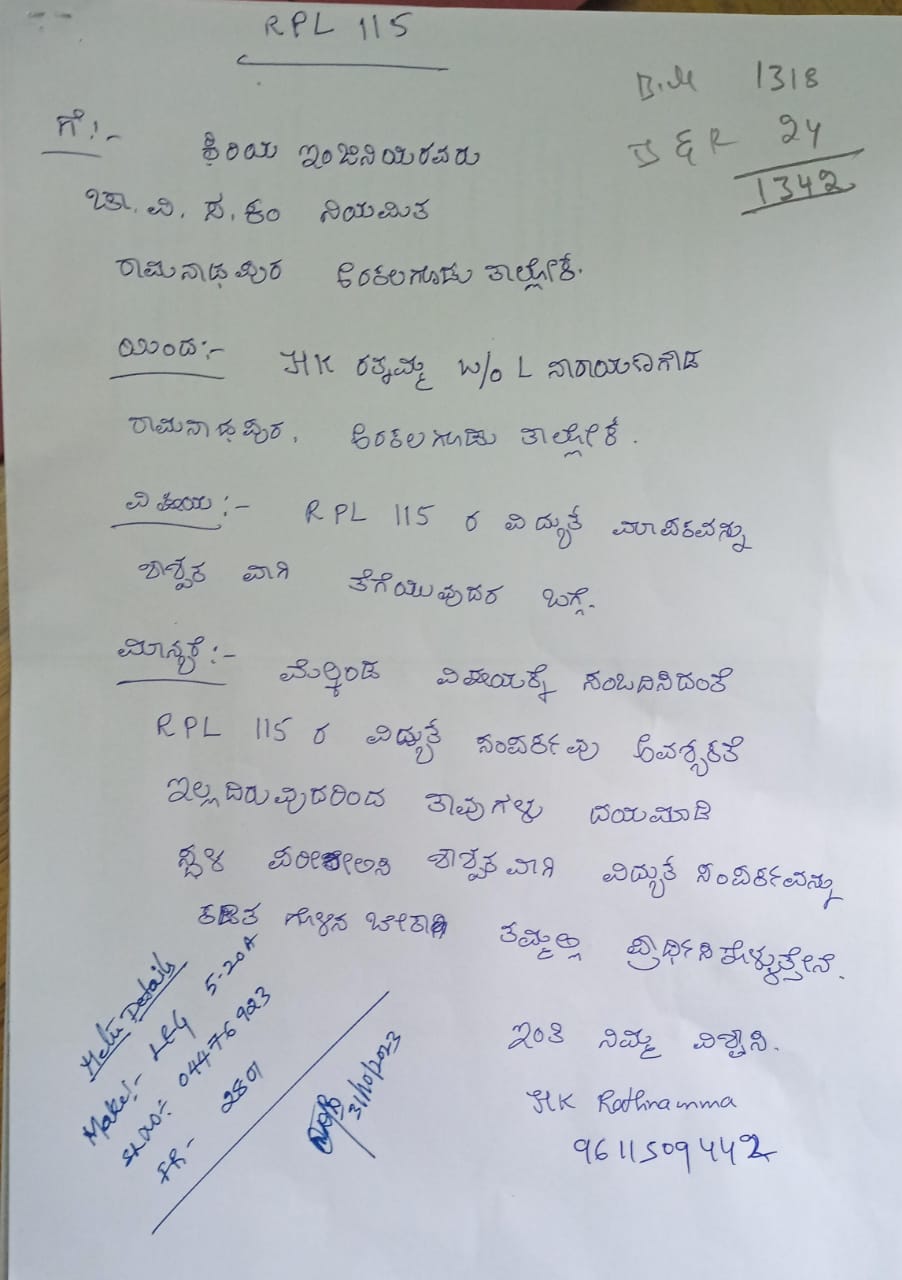 RPL 115
B.M 1318
D & R 24
1342
ಗೆ:-
ಕಿರಿಯ ಇಂಜಿನಿಯರವರು
ಚಾ. ವಿ. ಸ. ಕಂ ನಿಯಮಿತ
ರಾಮನಾಥಪುರ ಅರಕಲಗೂಡು ತಾಲ್ಲೋಕ್.
ಯಿಂದ:- HK ರತ್ನಮ್ಮ W/o L ನಾರಾಯಣಗೌಡ
ರಾಮನಾಥಪುರ, ಅರಕಲಗೂಡು ತಾಲ್ಲೋಕ್.
ವಿಷಯ:- RPL 115 ರ ವಿದ್ಯುತ್ ಮಾಪಕವನ್ನು
ಶಾಶ್ವತ ವಾಗಿ ತೆಗೆಯುವುದರ ಬಗ್ಗೆ.
ಮಾನ್ಯರೆ:- ಮೆಲ್ಕಂಡ ವಿಷಯಕ್ಕೆ ಸಂಬದಿಸಿದಂತೆ
RPL 115 ರ ವಿದ್ಯುತ್ ಸಂಪರ್ಕವು ಅವಶ್ಯಕತೆ
ಇಲ್ಲದಿರುವುದರಿಂದ ತಾವುಗಳು ದಯಮಾಡಿ
ಸ್ಥಳ ಪರಿಶೀಲಿಸಿ ಶಾಶ್ವತವಾಗಿ ವಿದ್ಯುತ್ ಸಂಪರ್ಕವನ್ನು
ಕಡಿತ ಗೊಳಿಸ ಬೇಕಾಗಿ ತಮ್ಮಲ್ಲಿ ಪ್ರಾರ್ಥಿಸಿಕೊಳ್ಳುತ್ತೇನೆ.
ಇಂತಿ ನಿಮ್ಮ ವಿಶ್ವಾಸಿ.
HK Rathnamma
9611509442
Meter Details
Make:- L&G 5-20A
SLNO:- 04476923
FR- 2801
31/10/2023